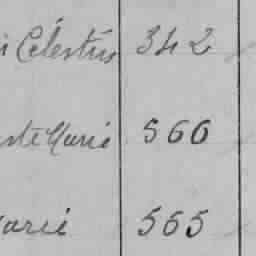 Célestin 342
Marie 566
Marie 565